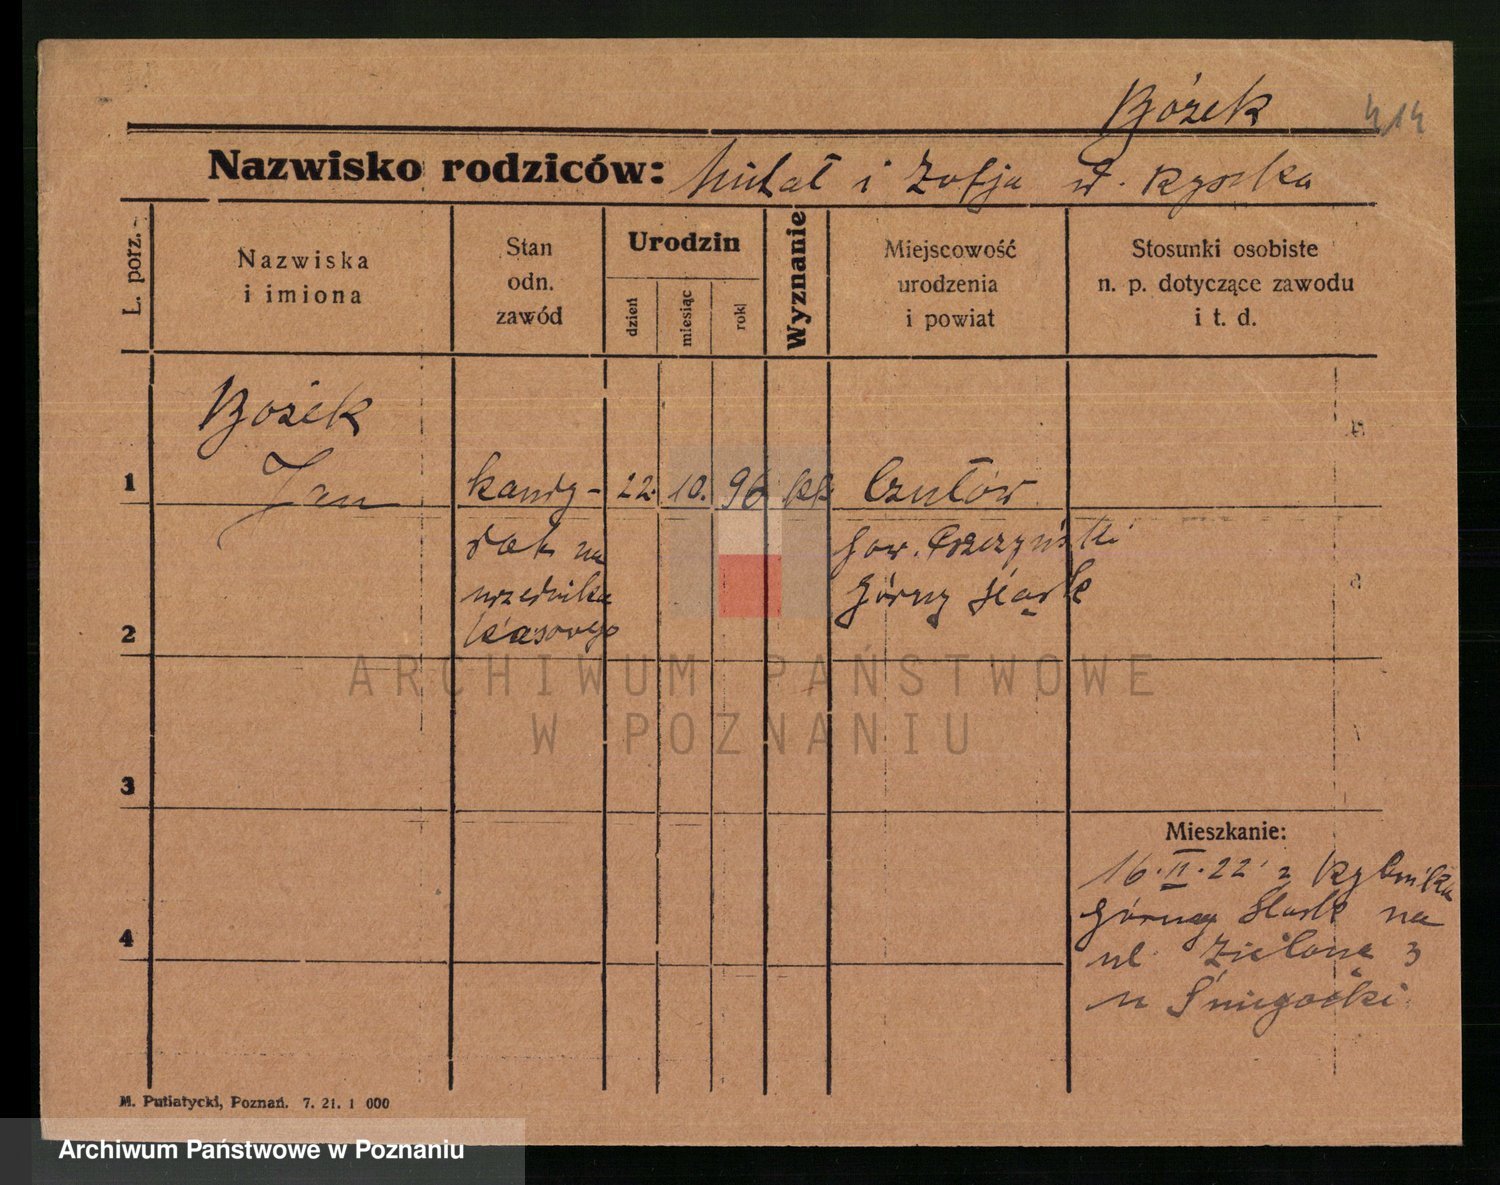 Bożek 414
Nazwisko rodziców: Michał i Zofja d. Ryszka
L. porz.
Nazwiska
i imiona
Stan
odn.
zawód
Urodzin
dzień
miesiąc
rok
Wyznanie
Miejscowość
urodzenia
i powiat
Stosunki osobiste
n. p. dotyczące zawodu
i t. d.
Bożek
1 Jan kandy- 22. 10. 96 kk Czułów
dat na pow. Pszczyński
urzędnika Górny Śląsk
2 kasowego
ARCHIWUM PAŃSTWOWE
W POZNANIU
3
Mieszkanie:
16.II.22 z Rybnika
4 Górny Śląsk na
ul. Zielona 3
u Śniegocki
M. Putiatycki, Poznań. 7. 21. 1 000
Archiwum Państwowe w Poznaniu